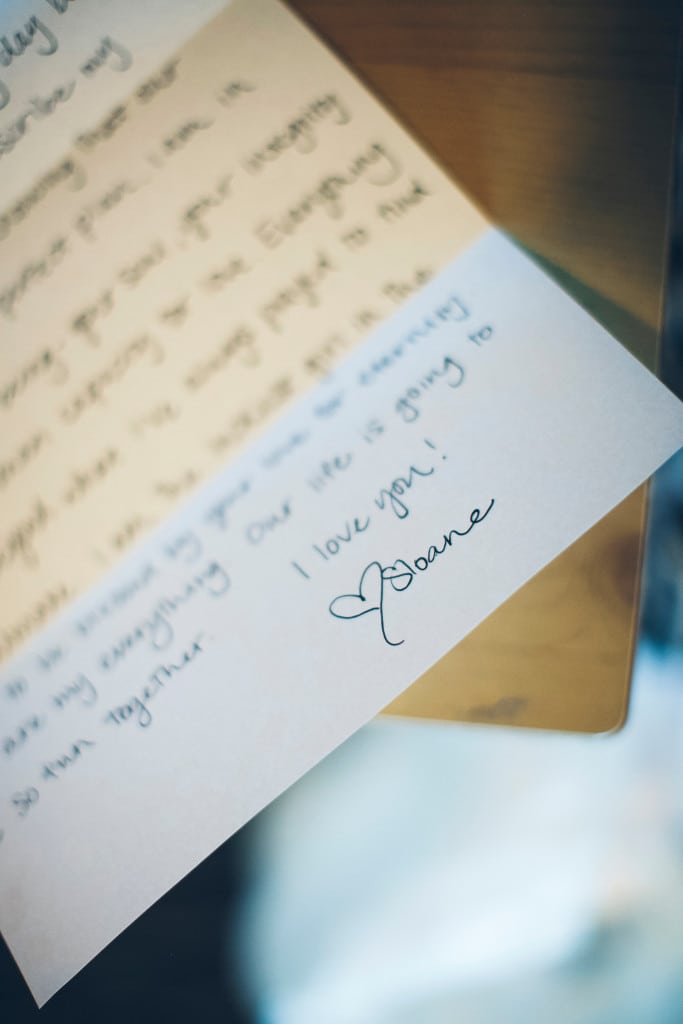 day
scribe my
knowing that our
perfect plan. I am in
your soul, your integrity
capacity for love. Everything
when I've always prayed to find
I am the luckiest girl in the
to be blessed by your love for eternity.
are my everything. Our life is going to
so fun together.
I love you!
Sloane